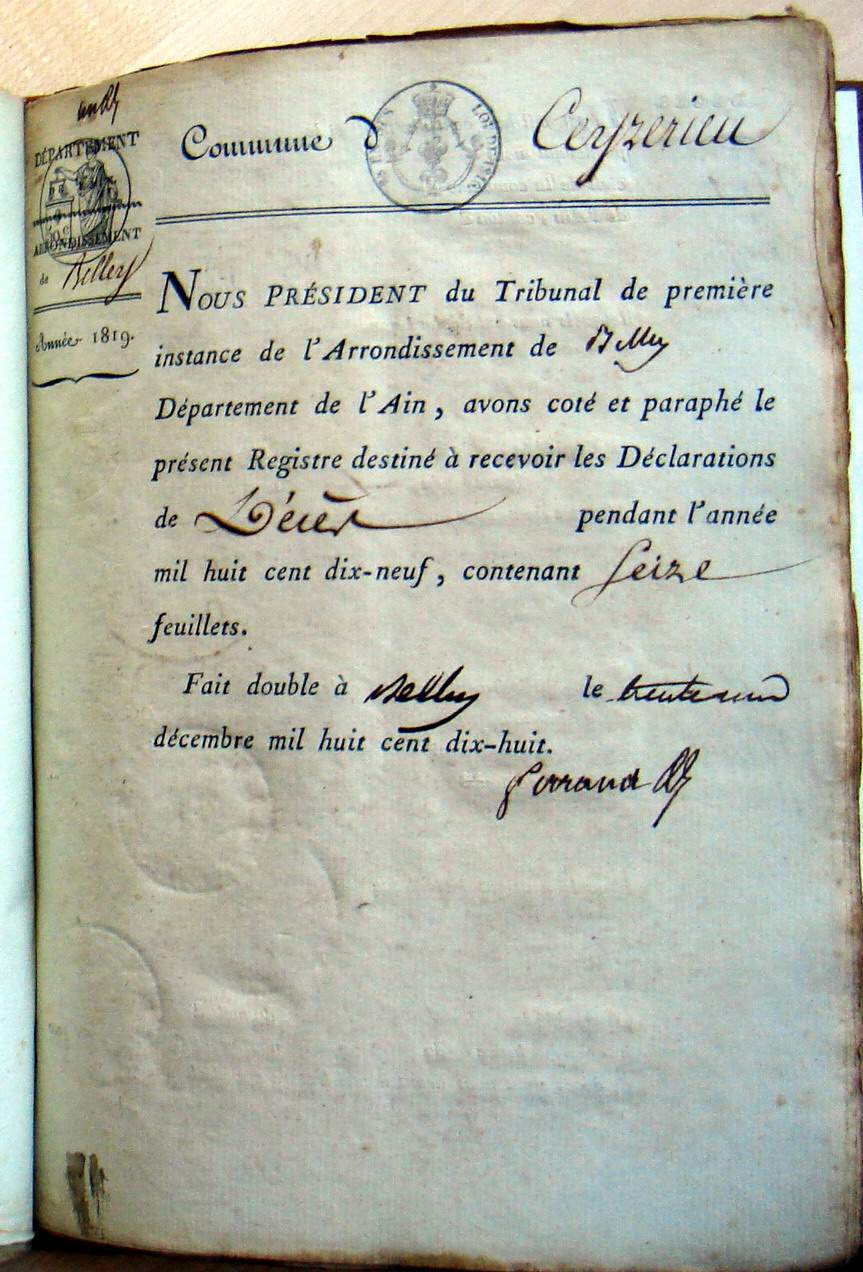 DÉPARTEMENT
50 C
ARRONDISSEMENT
de Belley
Année 1819.
Commune d Ceyzerieu
LOI DE 1816
NOUS PRÉSIDENT du Tribunal de première
instance de l'Arrondissement de Belley
Département de l'Ain, avons coté et paraphé le
présent Registre destiné à recevoir les Déclarations
de Décès pendant l'année
mil huit cent dix-neuf, contenant Seize
feuillets.
Fait double à Belley le trente un
décembre mil huit cent dix-huit.